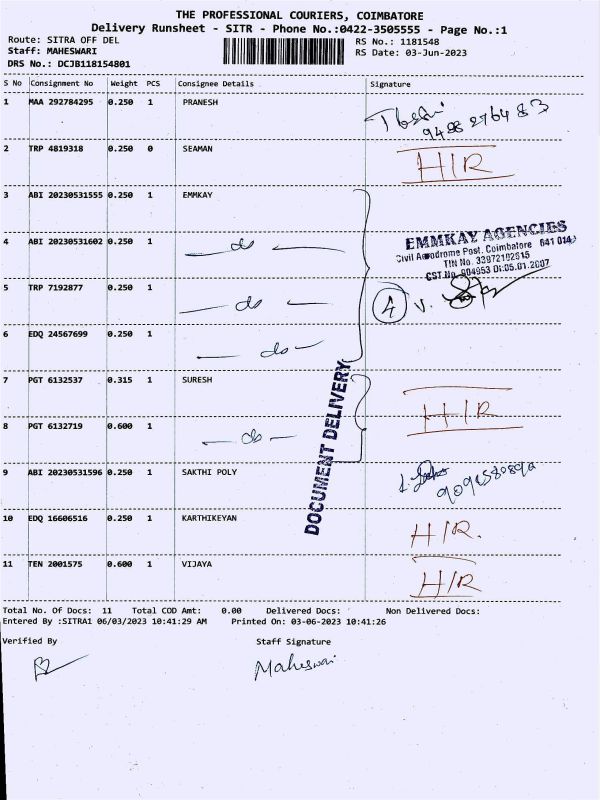 THE PROFESSIONAL COURIERS, COIMBATORE
Delivery Runsheet - SITR - Phone No.:0422-3505555 - Page No.:1
Route: SITRA OFF DEL
RS No.: 1181548
Staff: MAHESWARI
RS Date: 03-Jun-2023
DRS No.: DCJB118154801
S No Consignment No Weight PCS Consignee Details Signature
1 MAA 292784295 0.250 1 PRANESH
2 TRP 4819318 0.250 0 SEAMAN H/R
3 ABI 20230531555 0.250 1 EMMKAY
EMMKAY AGENCIES
Civil Aerodrome Post, Coimbatore 641 014
TIN No. 33972102615
CST No. 904953 Dt:05.01.2007
4 ABI 20230531602 0.250 1 — do —
5 TRP 7192877 0.250 1 — do — 4
6 EDQ 24567699 0.250 1 — do —
DOCUMENT DELIVERY
7 PGT 6132537 0.315 1 SURESH H/R
8 PGT 6132719 0.600 1 — do —
9 ABI 20230531596 0.250 1 SAKTHI POLY
10 EDQ 16606516 0.250 1 KARTHIKEYAN H/R.
11 TEN 2001575 0.600 1 VIJAYA H/R
Total No. Of Docs: 11 Total COD Amt: 0.00 Delivered Docs: Non Delivered Docs:
Entered By :SITRA1 06/03/2023 10:41:29 AM Printed On: 03-06-2023 10:41:26
Verified By Staff Signature
Maheswari